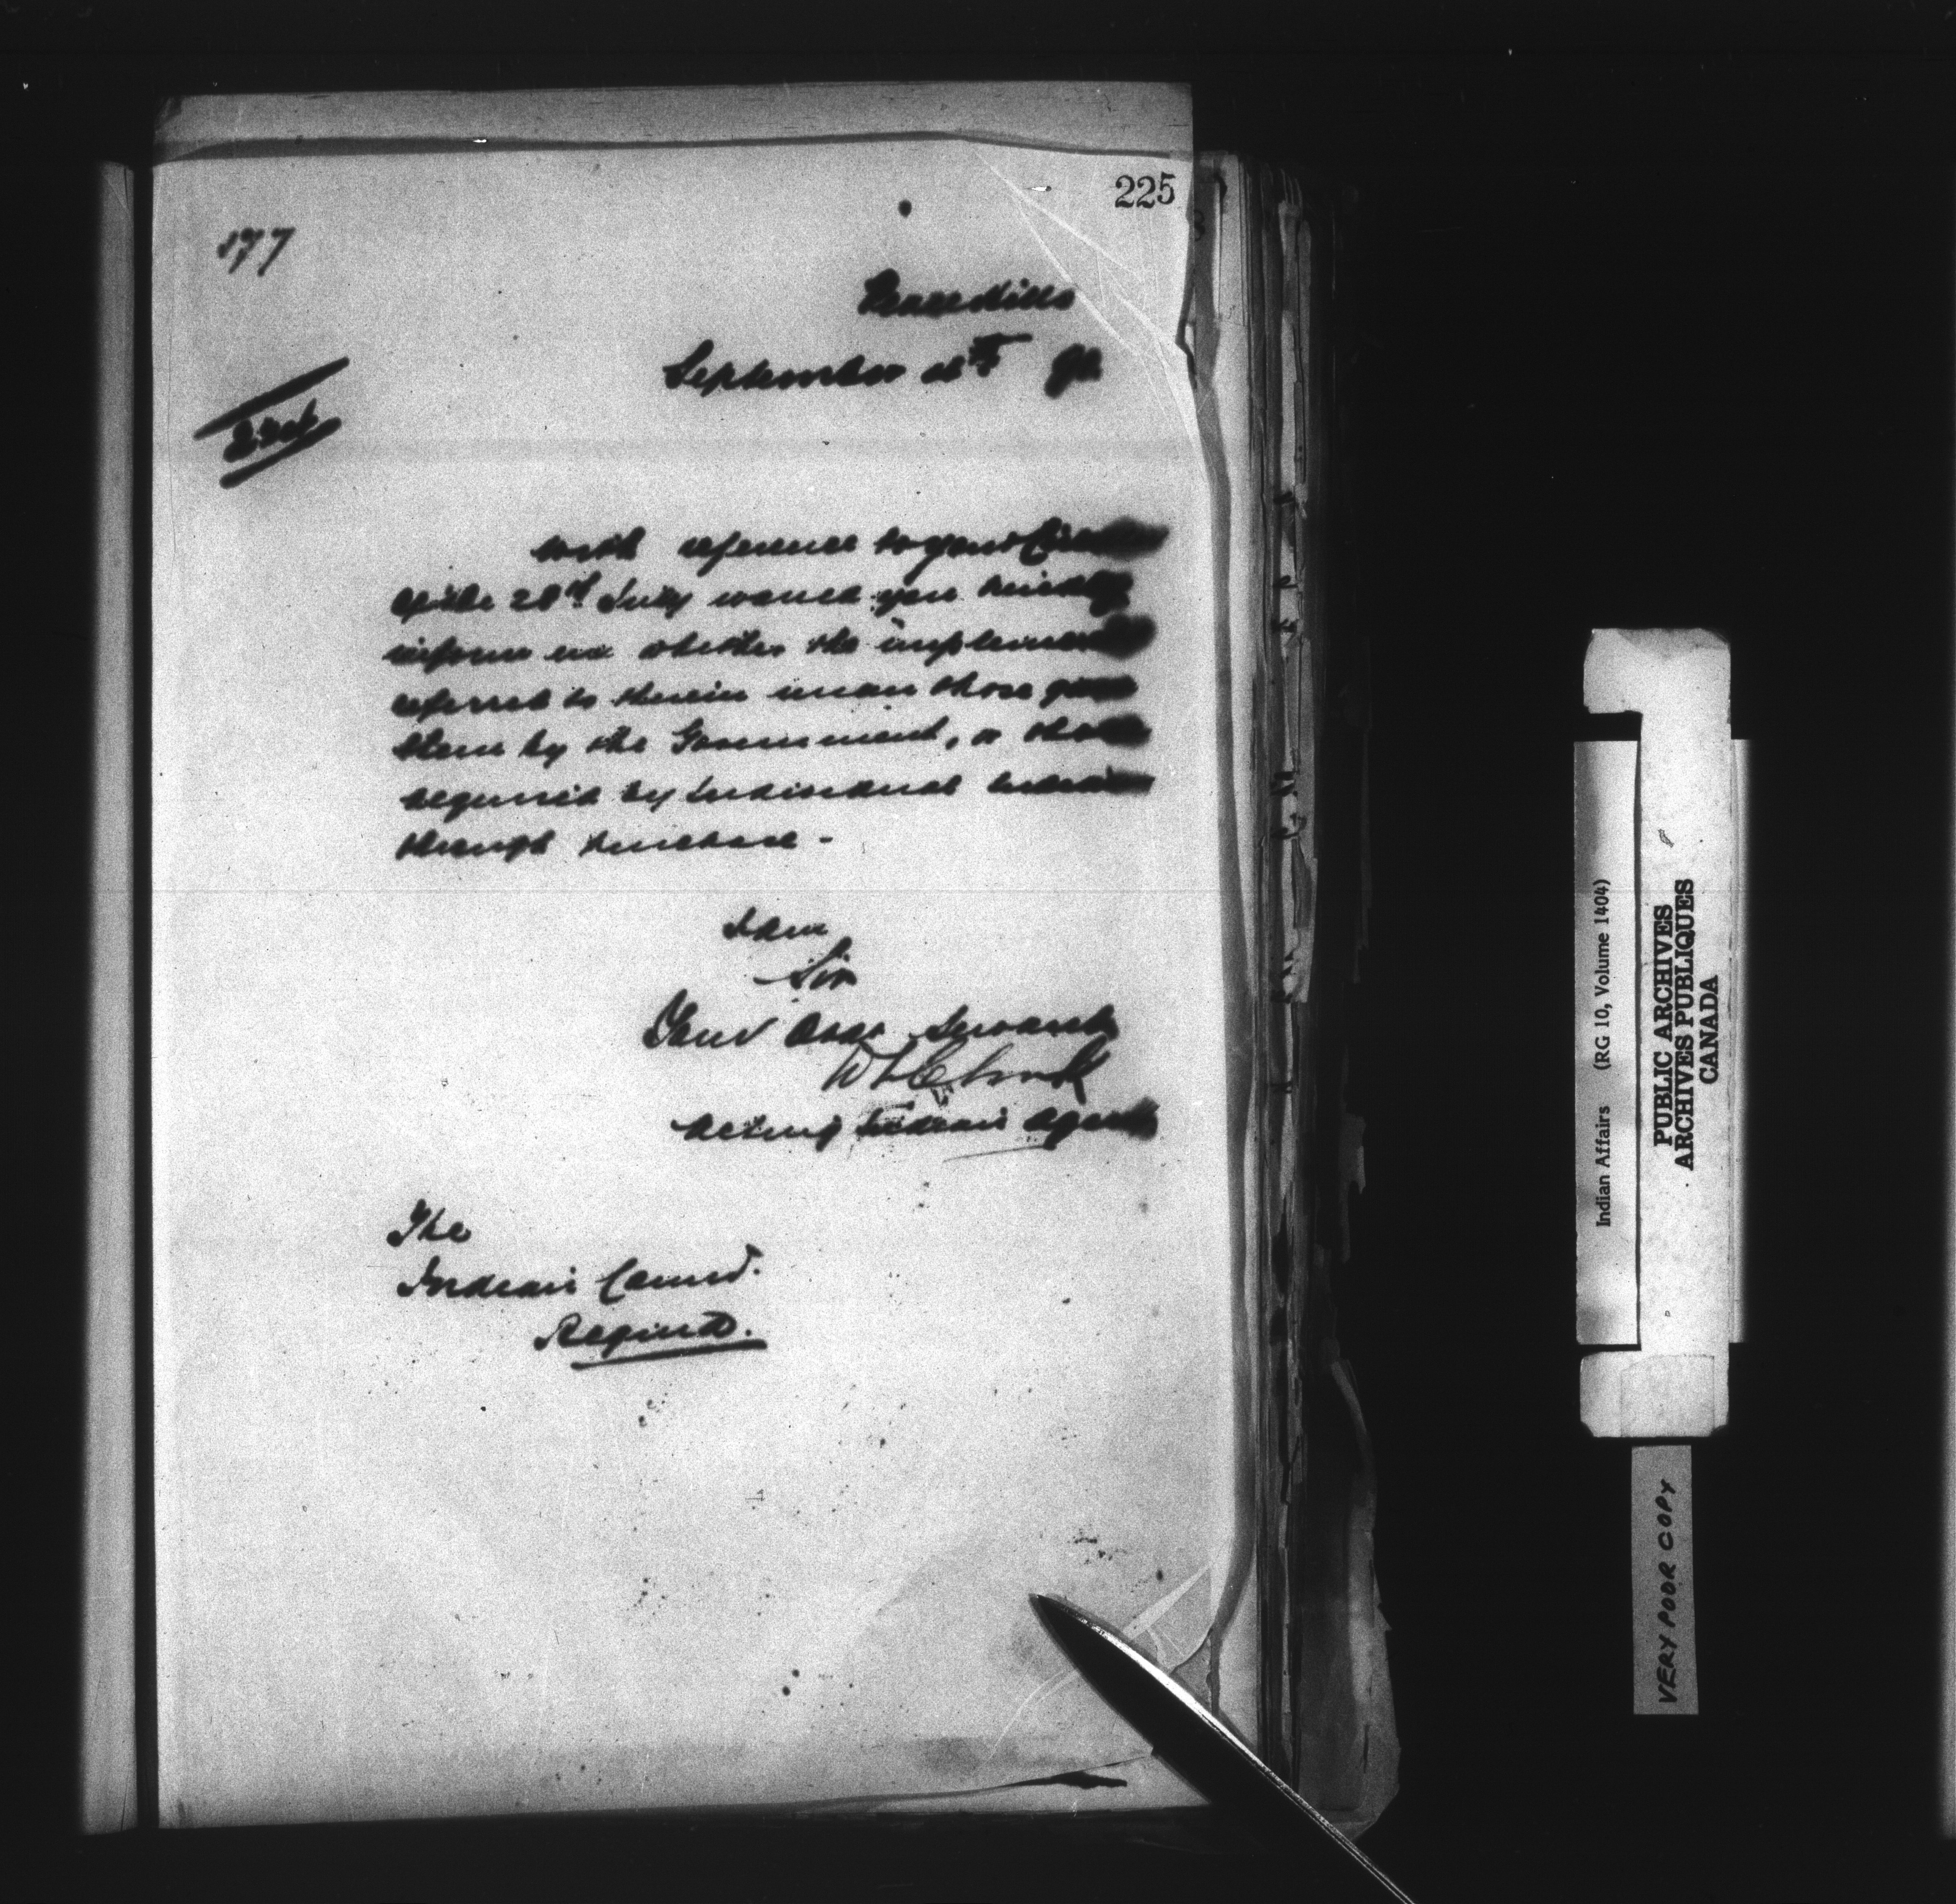 225
177
Peace Hills
September
With reference to your Circular
of the 28th July would you kindly
inform me whether the implements
referred to therein mean those given
them by the Government, or those
acquired by Individual Indians
through purchase -
I am
Sir
Your Obdt Servant
Acting Indian Agent
The
Indian Commr.
Regina.
Indian Affairs (RG 10, Volume 1404)
PUBLIC ARCHIVES
ARCHIVES PUBLIQUES
CANADA
VERY POOR COPY